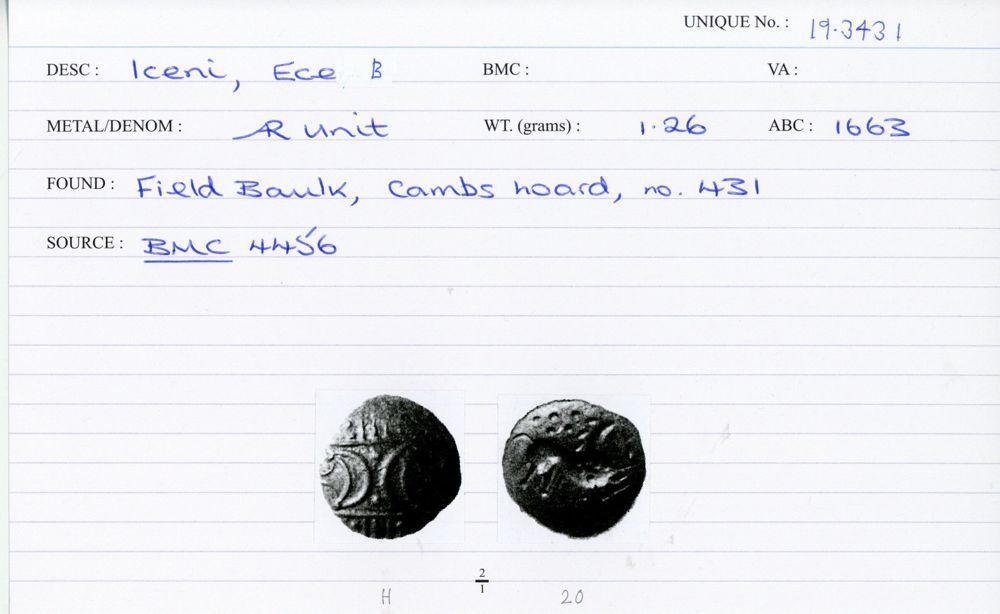 UNIQUE No. : 19.3431
DESC : Iceni, Ece B BMC : VA :
METAL/DENOM : AR unit WT. (grams) : 1.26 ABC : 1663
FOUND : Field Baulk, Cambs hoard, no. 431
SOURCE : BMC 4456
2
1
H 20